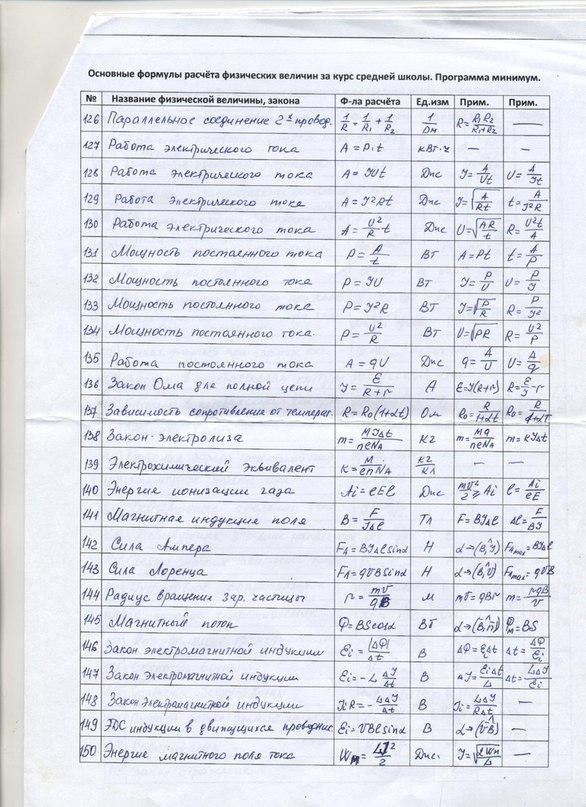 Основные формулы расчёта физических величин за курс средней школы. Программа минимум.
№ Название физической величины, закона Ф-ла расчёта Ед.изм Прим. Прим.
126 Параллельное соединение 2х провод. 1/R = 1/R₁ + 1/R₂ 1/Ом R = R₁R₂/(R₁+R₂) —
127 Работа электрического тока A = p.t кВт.ч — —
128 Работа электрического тока A = IUt Дж I = A/Ut U = A/It
129 Работа электрического тока A = I²Rt Дж I = √(A/Rt) t = A/I²R
130 Работа электрического тока A = U²/R · t Дж U = √(AR/t) R = U²t/A
131 Мощность постоянного тока P = A/t Вт A = Pt t = A/P
132 Мощность постоянного тока P = IU Вт I = P/U U = P/I
133 Мощность постоянного тока P = I²R Вт I = √(P/R) R = P/I²
134 Мощность постоянного тока. P = U²/R Вт U = √PR R = U²/P
135 Работа постоянного тока A = qU Дж q = A/U U = A/q
136 Закон Ома для полной цепи I = Ɛ/(R+r) А Ɛ = I(R+r) R = Ɛ/I - r
137 Зависимость сопротивления от температ. R = R₀(1+αt) Ом R₀ = R/(1+αt) R₀ = R/(1+αT)
138 Закон электролиза m = MIΔt/neNA кг m = Mq/neNA m = kIΔt
139 Электрохимический эквивалент K = M/enNA кг/кл — —
140 Энергие ионизации газа Ai = eEl Дж mV²/2 ≥ Ai l = Ai/eE
141 Магнитная индукция поля B = F/IΔl Тл F = BIΔl Δl = F/BI
142 Сила Ампера FA = BIΔlsinα Н α→(B,^I) FAmax = BIΔl
143 Сила Лоренца FЛ = qVBsinα Н α→(B,^V) FЛmax = qVB
144 Радиус вращения зар. частицы r = mV/qB м mV = qBr m = rqB/V
145 Магнитный поток Φ = BScosα Вб α→(B,^n) Φм = BS
146 Закон электромагнитной индукции Ɛi = |ΔΦ|/Δt В ΔΦ = ƐiΔt Δt = ΔΦ/Ɛi
147 Закон электромагнитной индукции Ɛi = -L ΔI/Δt В ΔI = ƐiΔt/L Δt = LΔI/Ɛi
148 Закон электромагнитной индукции IiR = -LΔI/Δt В Ii = LΔI/RΔt —
149 ЭДС индукции в движущихся проводник. Ɛi = VBlsinα В α→(V^B) —
150 Энергие магнитного поля тока Wм = LI²/2 Дж. I = √(2Wм/L) —